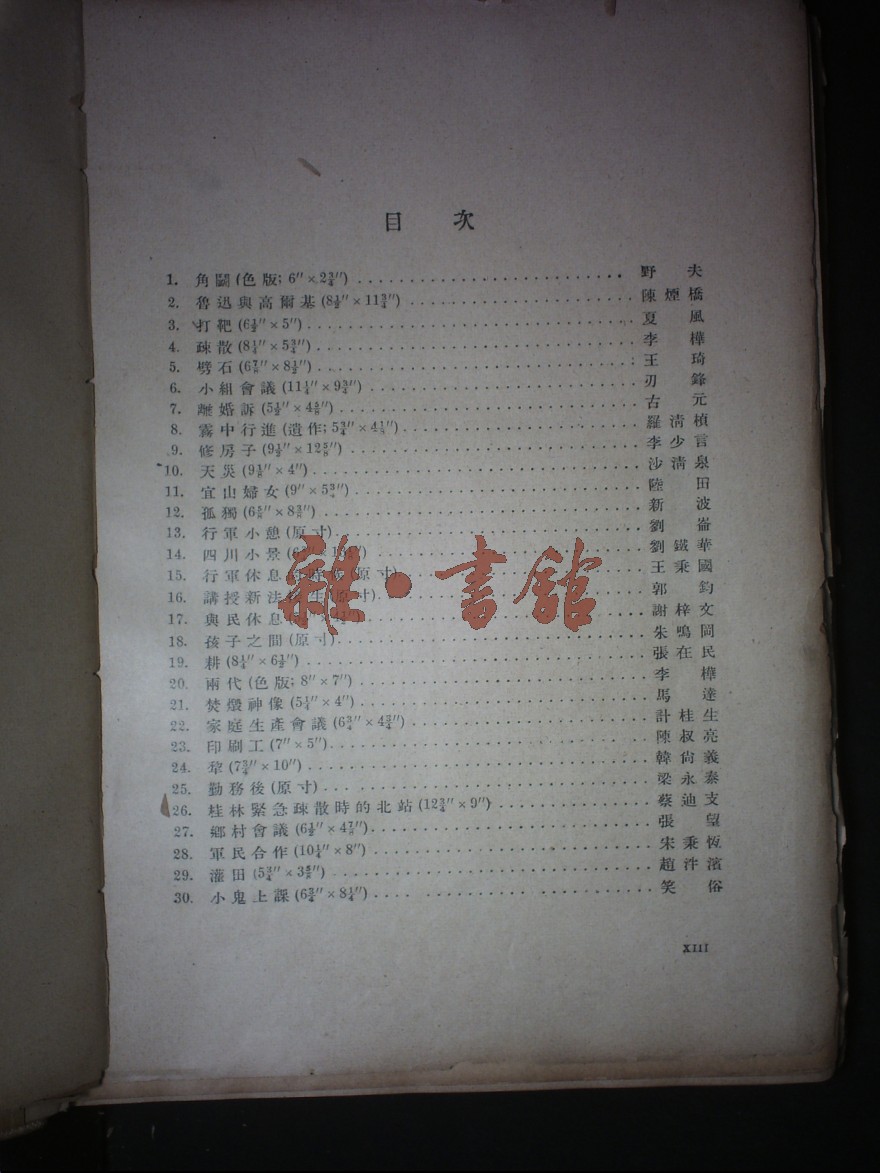 目 次
1. 角鬪(色版; 6″×2¾″) 野夫
2. 魯迅與高爾基(8½″×11¾″) 陳煙橋
3. 打靶(6½″×5″) 夏風
4. 疎散(8¼″×5¾″) 李樺
5. 劈石(6⅞″×8½″) 王琦
6. 小組會議(11¼″×9¾″) 刃鋒
7. 離婚訴(5½″×4⅝″) 古元
8. 霧中行進(遺作; 5¾″×4⅛″) 羅清楨
9. 修房子(9½″×12⅝″) 李少言
10. 天災(9⅛″×4″) 沙清泉
11. 宜山婦女(9″×5¾″) 陸田
12. 孤獨(6⅝″×8⅜″) 新波
13. 行軍小憩(原寸) 劉崙
14. 四川小景 劉鐵華
15. 行軍休息 (原寸) 王秉國
16. 講授新法 生(原寸) 郭鈞
17. 與民休息 謝梓文
18. 孩子之間(原寸) 朱鳴岡
19. 耕(8¼″×6½″) 張在民
20. 兩代(色版; 8″×7″) 李樺
21. 焚燬神像(5¼″×4″) 馬達
22. 家庭生產會議(6¾″×4¾″) 計桂生
23. 印刷工(7″×5″) 陳叔亮
24. 犂(7¾″×10″) 韓尙義
25. 勤務後(原寸) 梁永泰
26. 桂林緊急疎散時的北站(12¾″×9″) 蔡迪支
27. 鄉村會議(6½″×4⅞″) 張望
28. 軍民合作(10¼″×8″) 宋秉恆
29. 灌田(5¾″×3⅝″) 趙泮濱
30. 小鬼上課(6¾″×8¼″) 笑俗
XIII
雜·書館